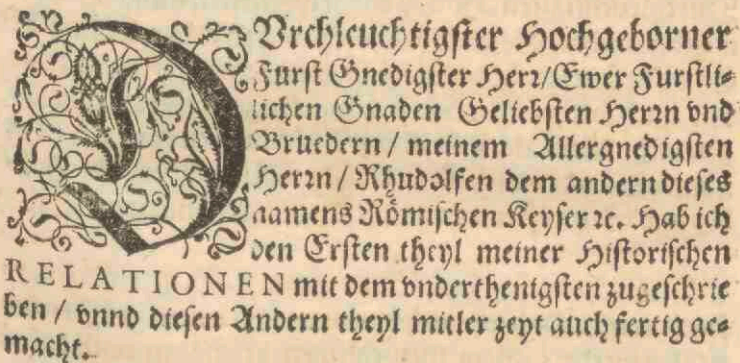 DVrchleuchtigster Hochgeborner
Furst Gnedigster Herr/Ewer Furstli⸗
lichen Gnaden Geliebsten Herrn vnd
Bruedern / meinem Allergnedigsten
Herrn / Rhudolfen dem andern dieses
namens Römischen Keyser ꝛc. Hab ich
den Ersten theyl meiner Historischen
RELATIONEN mit dem vnderthenigsten zugeschrie
ben / vnnd diesen Andern theyl mitler zeyt auch fertig ge⸗
macht.